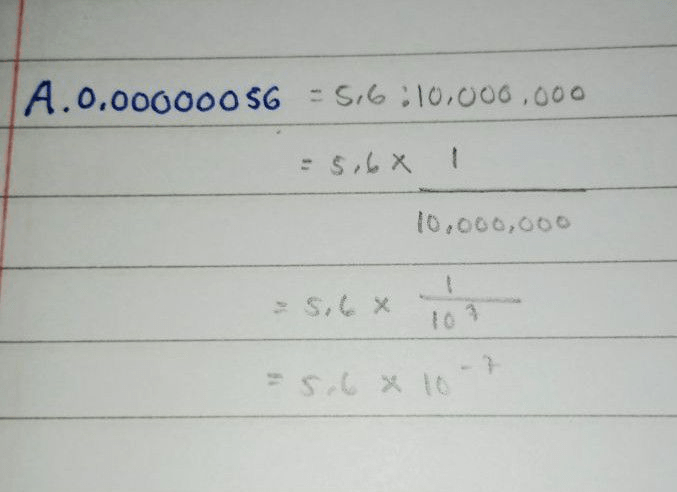 A. 0.00000056 = 5.6 : 10,000,000
= 5.6 × 1
10,000,000
= 5.6 × 1
10⁷
= 5.6 × 10⁻⁷